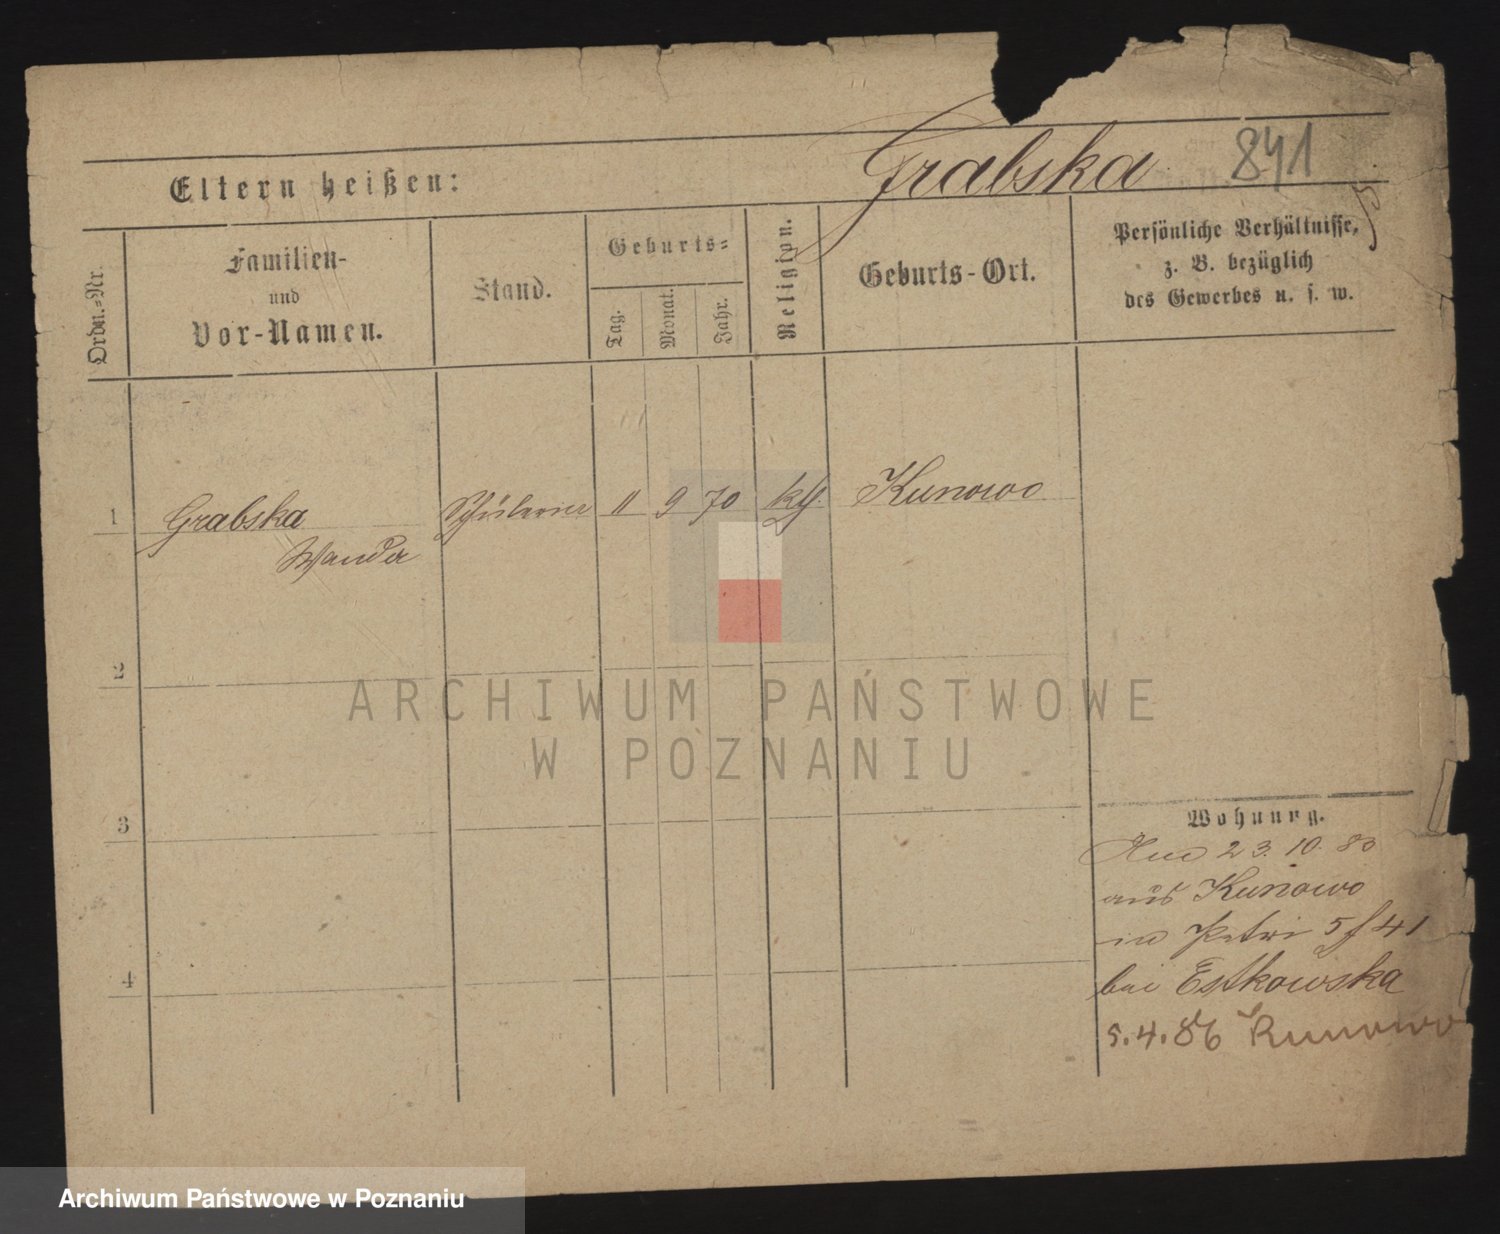 Grabska 841
Eltern heißen:
Ordn.-Nr.
Familien-
und
Vor-Namen.
Stand.
Geburts-
Tag.
Monat.
Jahr.
Religion.
Geburts-Ort.
Persönliche Verhältnisse,
z. B. bezüglich
des Gewerbes u. s. w.
1 Grabska Schülerin 11 9 70 kth. Kunowo
Wanda
2
3
4
Wohnung.
23. 10. 83
aus Kunowo
in Petri 5 f 41
bei Estkowska
5.4.86 Kunowo
ARCHIWUM PAŃSTWOWE
W POZNANIU
Archiwum Państwowe w Poznaniu